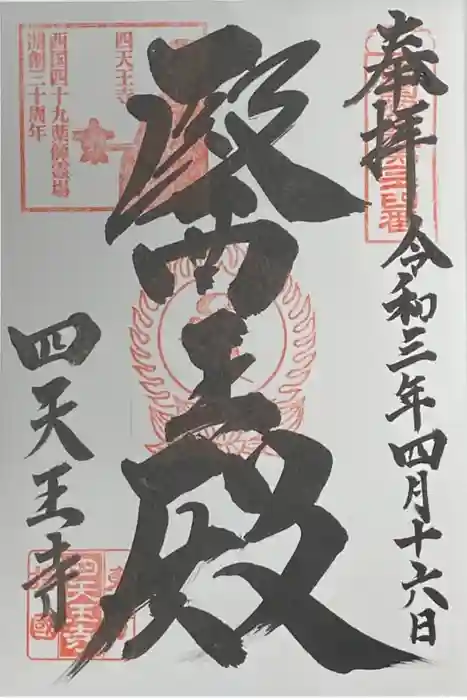 奉拝
令和三年四月十六日
醫王殿
四天王寺
四天王寺
西国四十九薬師霊場
開創三十周年
四天王寺